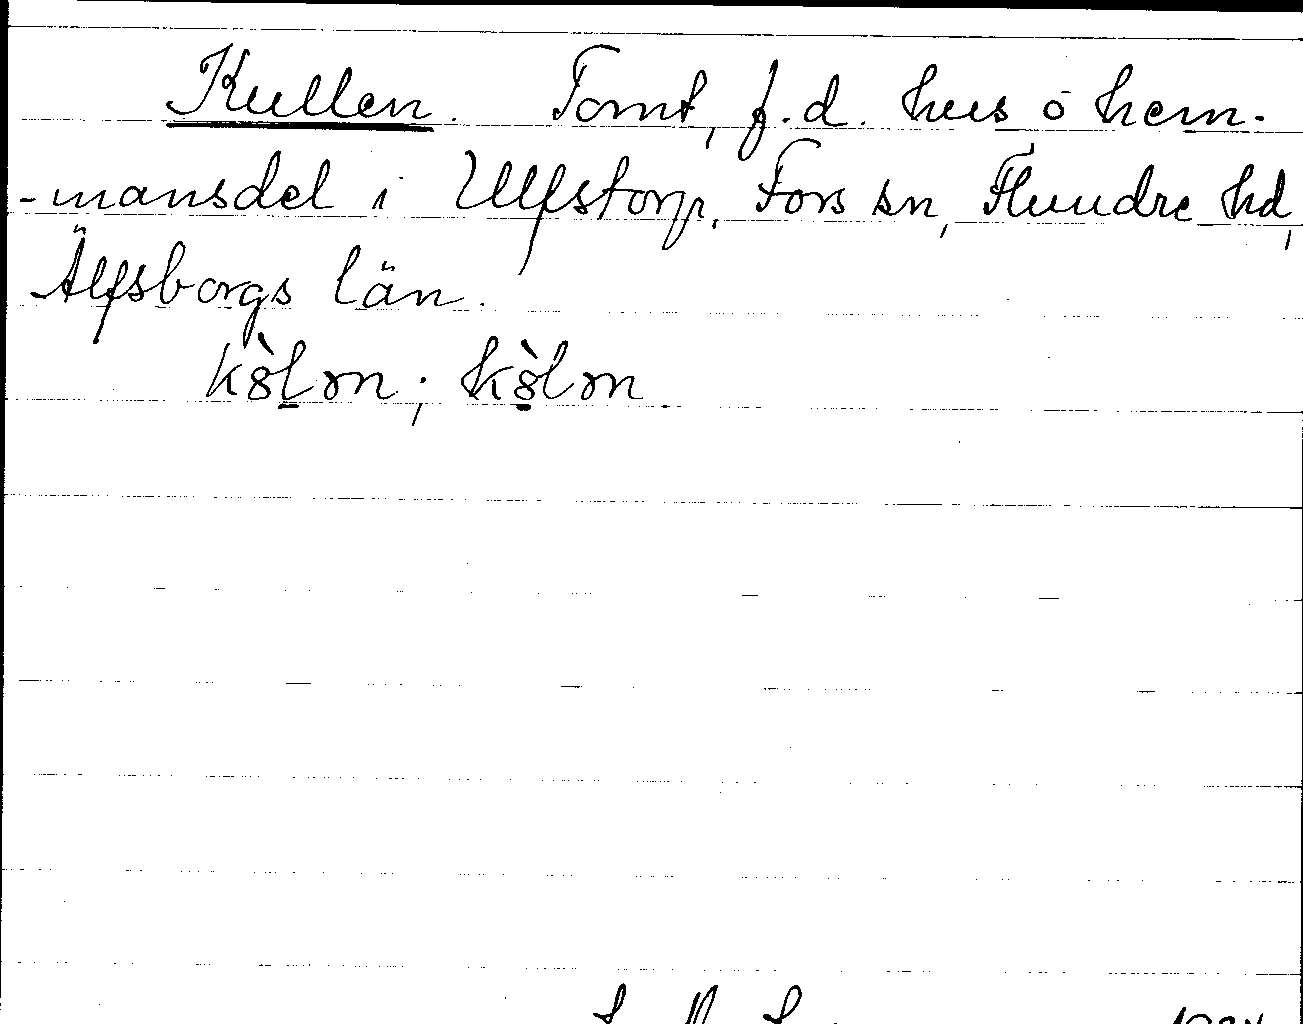 Kullen. Tomt, f.d. hus ō hem-
-mansdel i Ulfstorp, Fors sn, Flundre hd,
Älfsborgs län.